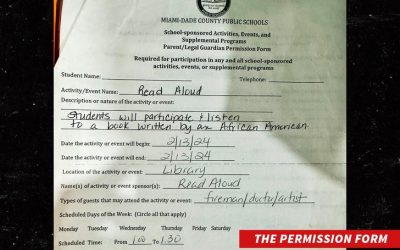 MIAMI-DADE COUNTY PUBLIC SCHOOLS
School-sponsored Activities, Events, and
Supplemental Programs
Parent/Legal Guardian Permission Form
Required for participation in any and all school-sponsored
activities, events, or supplemental programs
Student Name: Telephone:
Activity/Event Name: Read Aloud
Description or nature of the activity or event:
Students will participate & listen
to a book written by an African American.
Date the activity or event will begin: 2/13/24
Date the activity or event will end: 2/13/24
Location of the activity or event: Library
Name(s) of activity or event sponsor(s): Read Aloud
Types of guests that may attend the activity or event: fireman/doctor/artist
Scheduled Days of the Week: (Circle all that apply)
Monday Tuesday Wednesday Thursday Friday Saturday
Scheduled Time: From 1:00 To 1:30
THE PERMISSION FORM